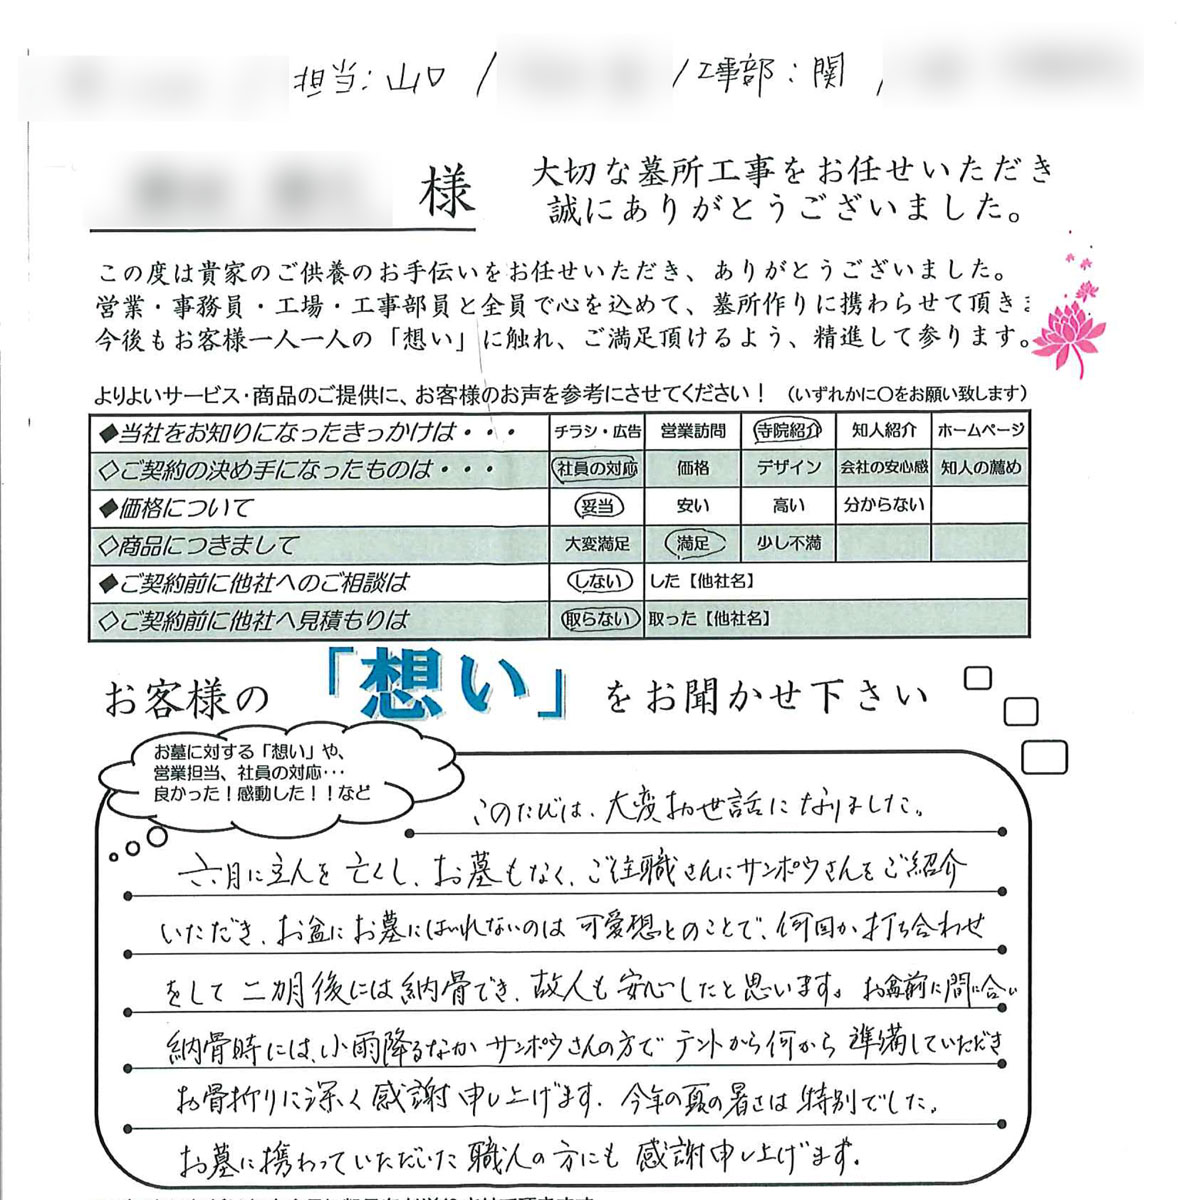 担当:山口 / /工事部:関,
様
大切な墓所工事をお任せいただき
誠にありがとうございました。
この度は貴家のご供養のお手伝いをお任せいただき、ありがとうございました。
営業・事務員・工場・工事部員と全員で心を込めて、墓所作りに携わらせて頂きま
今後もお客様一人一人の「想い」に触れ、ご満足頂けるよう、精進して参ります。
よりよいサービス・商品のご提供に、お客様のお声を参考にさせてください！（いずれかに〇をお願い致します）
◆当社をお知りになったきっかけは・・・ チラシ・広告 営業訪問 寺院紹介 知人紹介 ホームページ
◇ご契約の決め手になったものは・・・ 社員の対応 価格 デザイン 会社の安心感 知人の薦め
◆価格について 妥当 安い 高い 分からない
◇商品につきまして 大変満足 満足 少し不満
◆ご契約前に他社へのご相談は しない した【他社名】
◇ご契約前に他社へ見積もりは 取らない 取った【他社名】
お客様の「想い」をお聞かせ下さい
お墓に対する「想い」や、
営業担当、社員の対応・・・
良かった！感動した！！など
このたびは、大変お世話になりました。
六月に主人を亡くし、お墓もなく、ご住職さんにサンポウさんをご紹介
いただき、お盆にお墓にはいれないのは可愛想とのことで、何回か打ち合わせ
をして二カ月後には納骨でき、故人も安心したと思います。お盆前に間に合い
納骨時には、小雨降るなかサンポウさんの方でテントから何から準備していただき
お骨折りに深く感謝申し上げます。今年の夏の暑さは特別でした。
お墓に携わっていただいた職人の方にも感謝申し上げます。